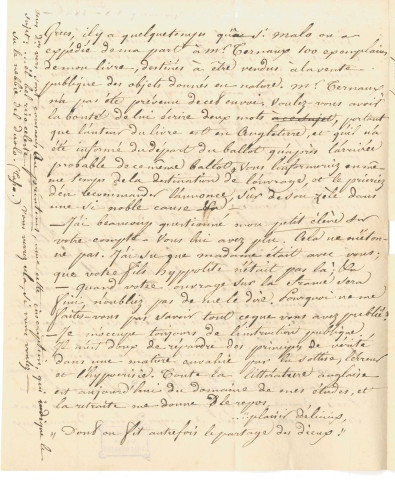 Grecs, il y a quelque temps qu'à St Malo on a
expédié de ma part à Mr. Ternaux 100 exemplaires
de mon livre, destinés à être vendus à la vente
publique des objets donnés en nature. Mr. Ternaux
n'a pas été prévenu de cet envoi. Voulez vous avoir
la bonté de lui écrire deux mots portant
que l'auteur du livre est en Angleterre, et qu'il n'a
été informé du départ du ballot qu'après l'arrivée
probable de ce même ballot. Vous l'informeriez en même
temps de la destination de l'ouvrage, et le prieriez
d'en recommander l'annonce, sûr de son zèle dans
une si noble cause
— J'ai beaucoup questionné mon petit élève sur
votre compte. Vous lui avez plu. Cela ne m'étonne
pas. J'ai su que madame était avec vous;
que votre fils hyppolite n'était pas là;
— Quand votre ouvrage sur la France sera
fini, n'oubliez pas de me le dire. Pourquoi ne me
faites-vous pas savoir tout ce que vous avez publié?
— Je m'occupe toujours de l'instruction publique.
Il m'est doux de répandre des principes de vérité
dans une matière envahie par la sottise, l'erreur
et l'hypocrisie. Toute la littérature anglaise
est aujourd'hui du domaine de mes études, et
la retraite me donne le repos,
....plaisir délicieux,
" Dont on fit autrefois le partage des dieux;